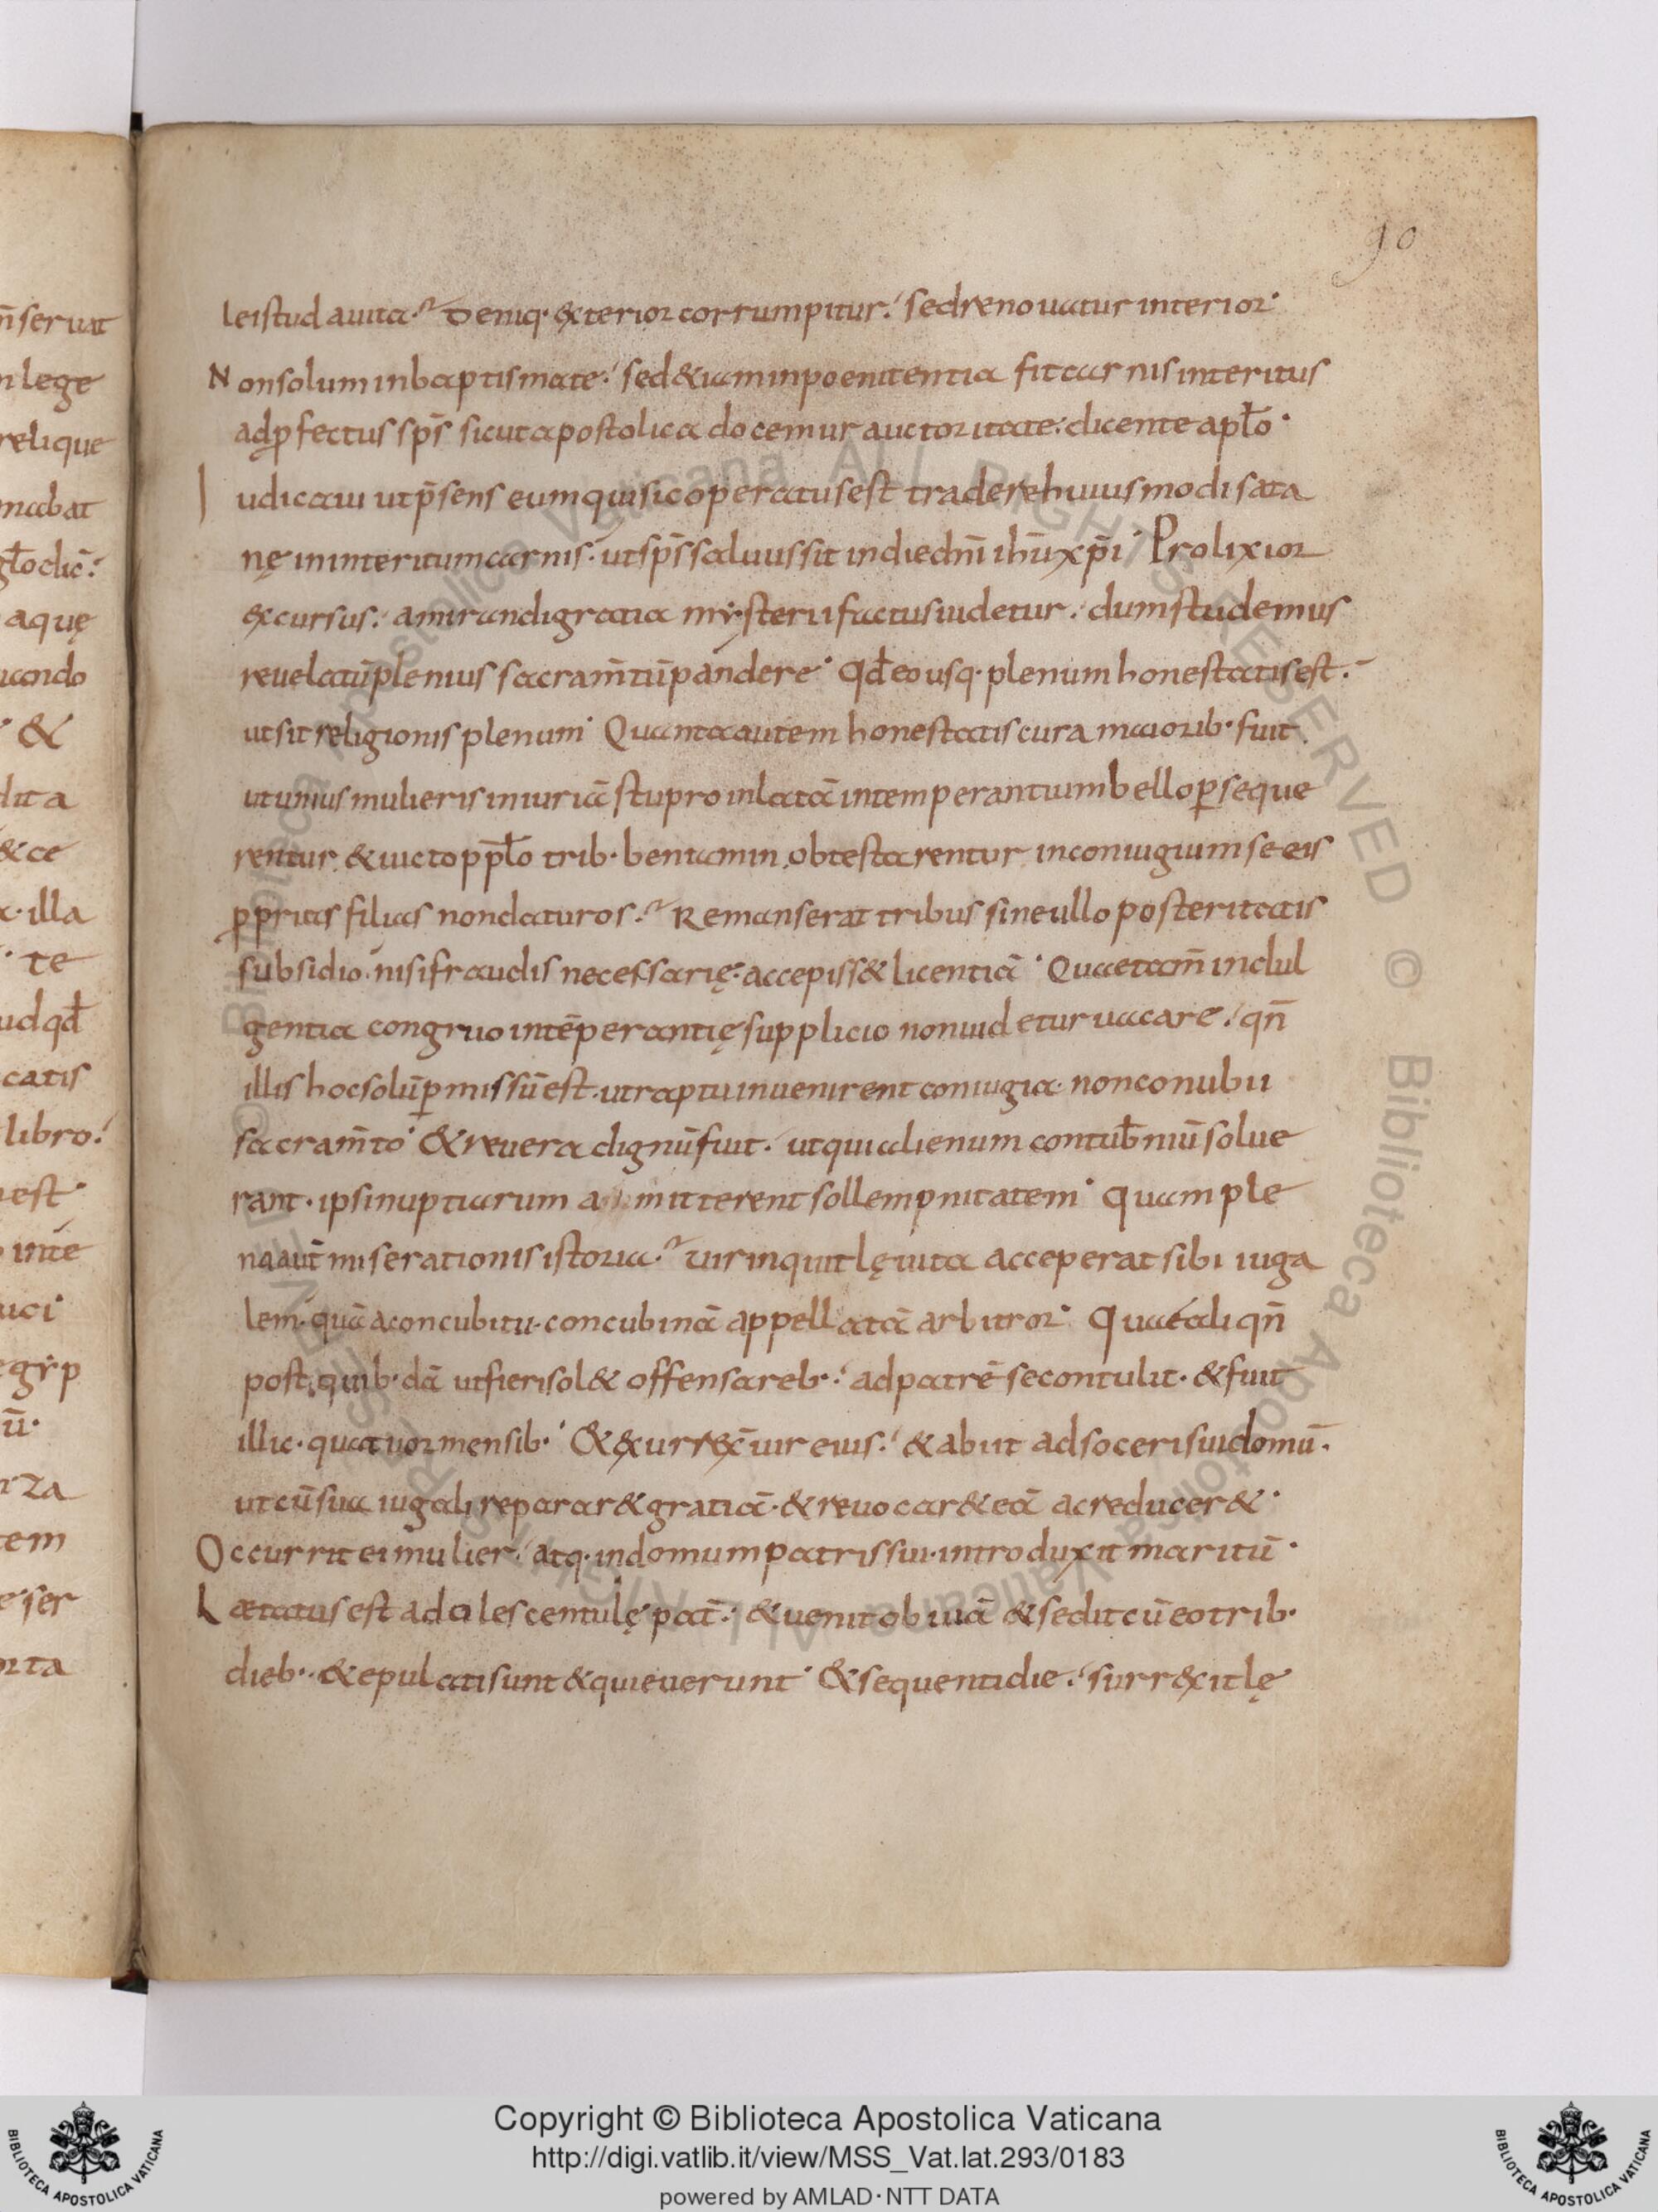 90
le istud a uita. Deniq· exterior corrumpitur. sed renouatur interior.
Non solum in baptismate. sed &iam in poenitentia fit carnis interitus
ad ꝑfectus sp̄s sicut apostolica docemur auctoritate. dicente apl̄o.
Iudicaui ut p̄sens eum qui sic operatus est tradere huiusmodi sata
nę in interitum carnis. ut sp̄s saluus sit in die dn̄i ih̄u xp̄i. Prolixior
excursus. amirandi gratia mẏsterii factus uidetur. dum studemus
reuelatū plenius sacram̄tū pandere. Qd̄ eo usq· plenum honestatis est.
ut sit religionis plenum. Quanta autem honestatis cura maiorib· fuit.
ut unius mulieris iniuriā stupro inlatā intemperantium bello ꝑseque
rentur. & uicto ppl̄o trib· beniamin, obtestarentur in coniugium se eis
ꝓprias filias non daturos. Remanserat tribus sine ullo posteritatis
subsidio. nisi fraudis necessarię. accepiss& licentiā. Quae tam̄ indul
gentia congruo intēperantię supplicio non uidetur uacare. qn̄
illis hoc solū ꝑmissū est. ut raptu inuenirent coniugia. non conubii
sacram̄to. & reuera dignū fuit. ut qui alienum contub̄niū solue
rant. ipsi nuptiarum amitterent sollempnitatem. Quam ple
na aut̄ miserationis istoria. uir inquit lęuita acceperat sibi iuga
lem. quā a concubitu. concubinā appellatā arbitror. Quae aliqn̄
post quib·dā ut fieri sol& offensa reb·. ad patrē se contulit. & fuit
illic. quatuor mensib·. & exurrex̄ uir eius. & abiit ad soceri sui domū.
ut cū sua iugali reparar& gratiā. & reuocar& eā ac reducer&.
Occurrit ei mulier. atq· in domum patris sui. introduxit maritū.
Laetatus est adulescentulę pat̄. & uenit obuiā & sedit cū eo trib·
dieb·. & epulati sunt & quieuerunt. & sequenti die. surrexit lę
Copyright © Biblioteca Apostolica Vaticana
http://digi.vatlib.it/view/MSS_Vat.lat.293/0183
powered by AMLAD·NTT DATA
BIBLIOTECA APOSTOLICA VATICANA
BIBLIOTECA APOSTOLICA VATICANA